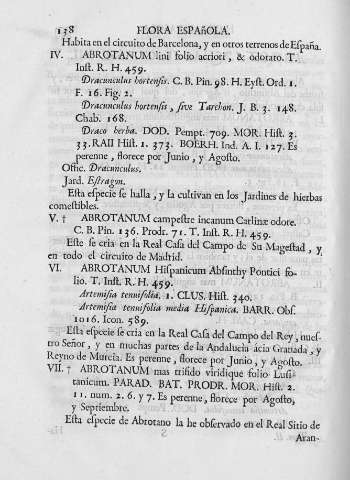 138 FLORA ESPAñOLA.
Habita en el circuito de Barcelona, y en otros terrenos de España.
IV. ABROTANUM lini folio acriori, & odorato. T.
Inst. R. H. 459.
Dracunculus hortensis. C. B. Pin. 98. H. Eyst. Ord. 1.
F. 16. Fig. 2.
Dracunculus hortensis, sive Tarchon. J. B. 3. 148.
Chab. 168.
Draco herba. DOD. Pempt. 709. MOR. Hist. 3.
33. RAII Hist. 1. 373. BOERH. Ind. A. I. 127. Es
perenne, florece por Junio, y Agosto.
Offic. Dracunculus.
Jard. Estragon.
Esta especie se halla, y la cultivan en los Jardines de hierbas
comestibles.
V. † ABROTANUM campestre incanum Carlinæ odore.
C. B. Pin. 136. Prodr. 71. T. Inst. R. H. 459.
Este se cria en la Real Casa del Campo de Su Magestad, y
en todo el circuito de Madrid.
VI. ABROTANUM Hispanicum Absinthy Pontici fo-
lio. T. Inst. R. H. 459.
Artemisia tenuifolia. 1. CLUS. Hist. 340.
Artemisia tenuifolia media Hispanica. BARR. Obs.
1016. Icon. 589.
Esta especie se cria en la Real Casa del Campo del Rey, nues-
tro Señor, y en muchas partes de la Andalucia ácia Granada, y
Reyno de Murcia. Es perenne, florece por Junio, y Agosto.
VII. † ABROTANUM mas trifido viridique folio Lusi-
tanicum. PARAD. BAT. PRODR. MOR. Hist. 2.
11. num. 2. 6. y 7. Es perenne, florece por Agosto,
y Septiembre.
Esta especie de Abrotano la he observado en el Real Sitio de
S
Aran-